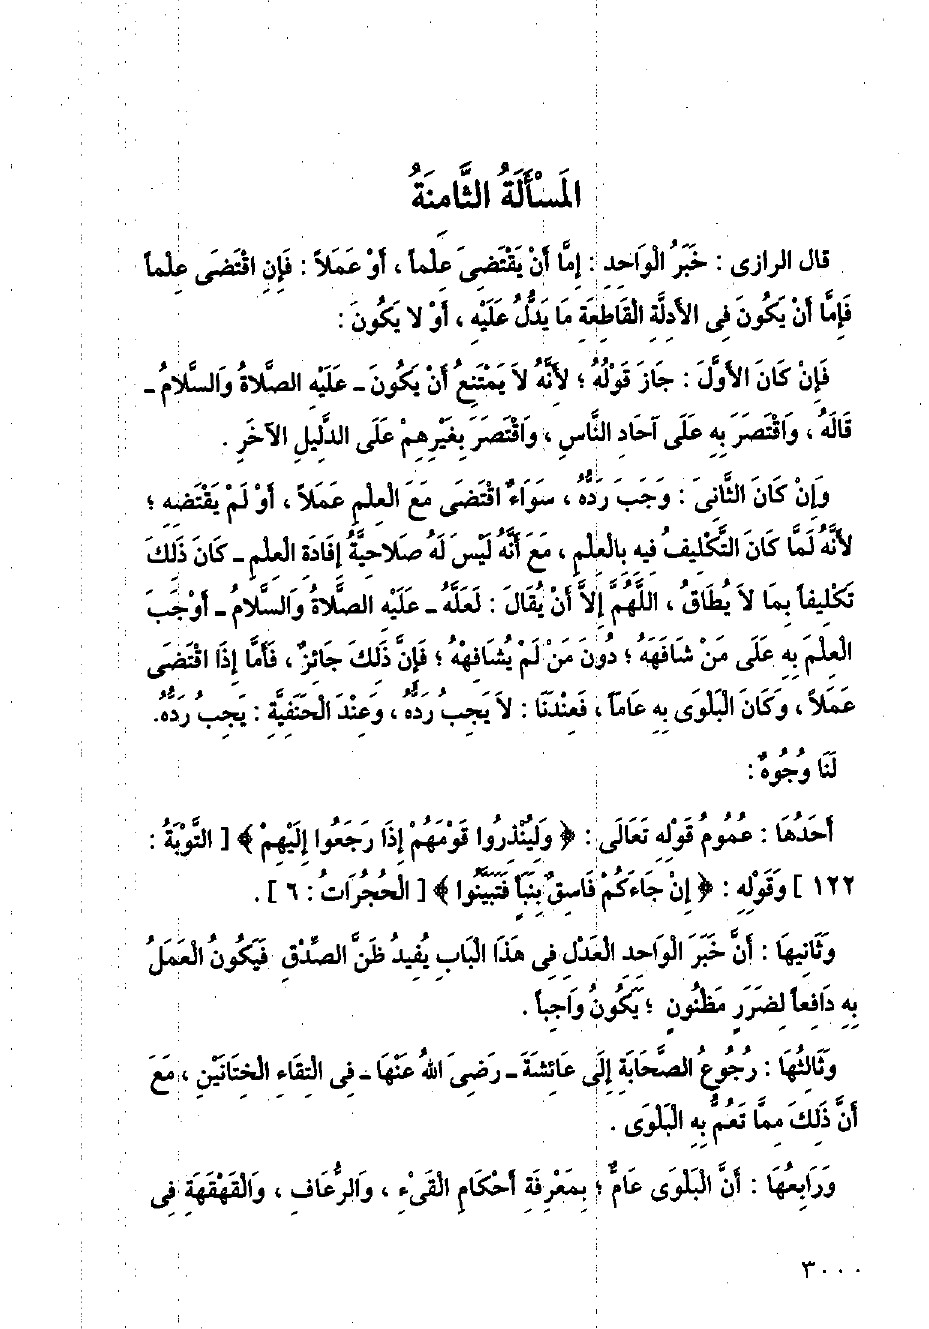 المَسْأَلَةُ الثَّامِنَةُ
قال الرازى : خَبَرُ الْوَاحِدِ : إِمَّا أَنْ يَقْتَضِىَ عِلْماً ، أَوْ عَمَلاً : فَإِنِ اقْتَضَى عِلْماً
فَإِمَّا أَنْ يَكُونَ فِى الأَدِلَّةِ الْقَاطِعَةِ مَا يَدُلُّ عَلَيْهِ ، أَوْ لا يَكُونَ :
فَإِنْ كَانَ الأَوَّلَ : جَازَ قَوْلُهُ ؛ لأَنَّهُ لاَ يَمْتَنِعُ أَنْ يَكُونَ ـ عَلَيْهِ الصَّلاةُ وَالسَّلامُ ـ
قَالَهُ ، وَاقْتَصَرَ بِهِ عَلَى آحَادِ النَّاسِ ، وَاقْتَصَرَ بِغَيْرِهِمْ عَلَى الدَّلِيلِ الآخَرِ .
وَإِنْ كَانَ الثَّانِىَ : وَجَبَ رَدُّهُ ، سَوَاءٌ اقْتَضَى مَعَ الْعِلْمِ عَمَلاً ، أَوْ لَمْ يَقْتَضِهِ ؛
لأَنَّهُ لَمَّا كَانَ التَّكْلِيفُ فِيهِ بِالْعِلْمِ ، مَعَ أَنَّهُ لَيْسَ لَهُ صَلاحِيَّةُ إِفَادَةِ الْعِلْمِ ـ كَانَ ذَلِكَ
تَكْلِيفاً بِمَا لاَ يُطَاقُ ، اللَّهُمَّ إِلاَّ أَنْ يُقَالَ : لَعَلَّهُ ـ عَلَيْهِ الصَّلاةُ وَالسَّلامُ ـ أَوْجَبَ
الْعِلْمَ بِهِ عَلَى مَنْ شَافَهَهُ ؛ دُونَ مَنْ لَمْ يُشَافِهْهُ ؛ فَإِنَّ ذَلِكَ جَائِزٌ ، فَأَمَّا إِذَا اقْتَضَى
عَمَلاً ، وَكَانَ الْبَلْوَى بِهِ عَامّاً ، فَعِنْدَنَا : لاَ يَجِبُ رَدُّهُ ، وَعِنْدَ الْحَنَفِيَّةِ : يَجِبُ رَدُّهُ.
لَنَا وُجُوهٌ :
أَحَدُهَا : عُمُومُ قَوْلِهِ تَعَالَى : ﴿ وَلِيُنْذِرُوا قَوْمَهُمْ إِذَا رَجَعُوا إِلَيْهِمْ ﴾ [ التَّوْبَةُ :
١٢٢ ] وَقَوْلِهِ : ﴿ إِنْ جَاءَكُمْ فَاسِقٌ بِنَبَأٍ فَتَبَيَّنُوا ﴾ [ الْحُجُرَاتُ : ٦ ] .
وَثَانِيهَا : أَنَّ خَبَرَ الْوَاحِدِ الْعَدْلِ فِى هَذَا الْبَابِ يُفِيدُ ظَنَّ الصِّدْقِ فَيَكُونُ الْعَمَلُ
بِهِ دَافِعاً لِضَرَرٍ مَظْنُونٍ ؛ يَكُونُ وَاجِباً .
وَثَالِثُهَا : رُجُوعُ الصَّحَابَةِ إِلَى عَائِشَةَ ـ رَضِىَ اللهُ عَنْهَا ـ فِى الْتِقَاءِ الْخِتَانَيْنِ ، مَعَ
أَنَّ ذَلِكَ مِمَّا تَعُمُّ بِهِ الْبَلْوَى .
وَرَابِعُهَا : أَنَّ الْبَلْوَى عَامٌّ ؛ بِمَعْرِفَةِ أَحْكَامِ الْقَىْءِ ، وَالرُّعَافِ ، وَالْقَهْقَهَةِ فِى
٣٠٠٠